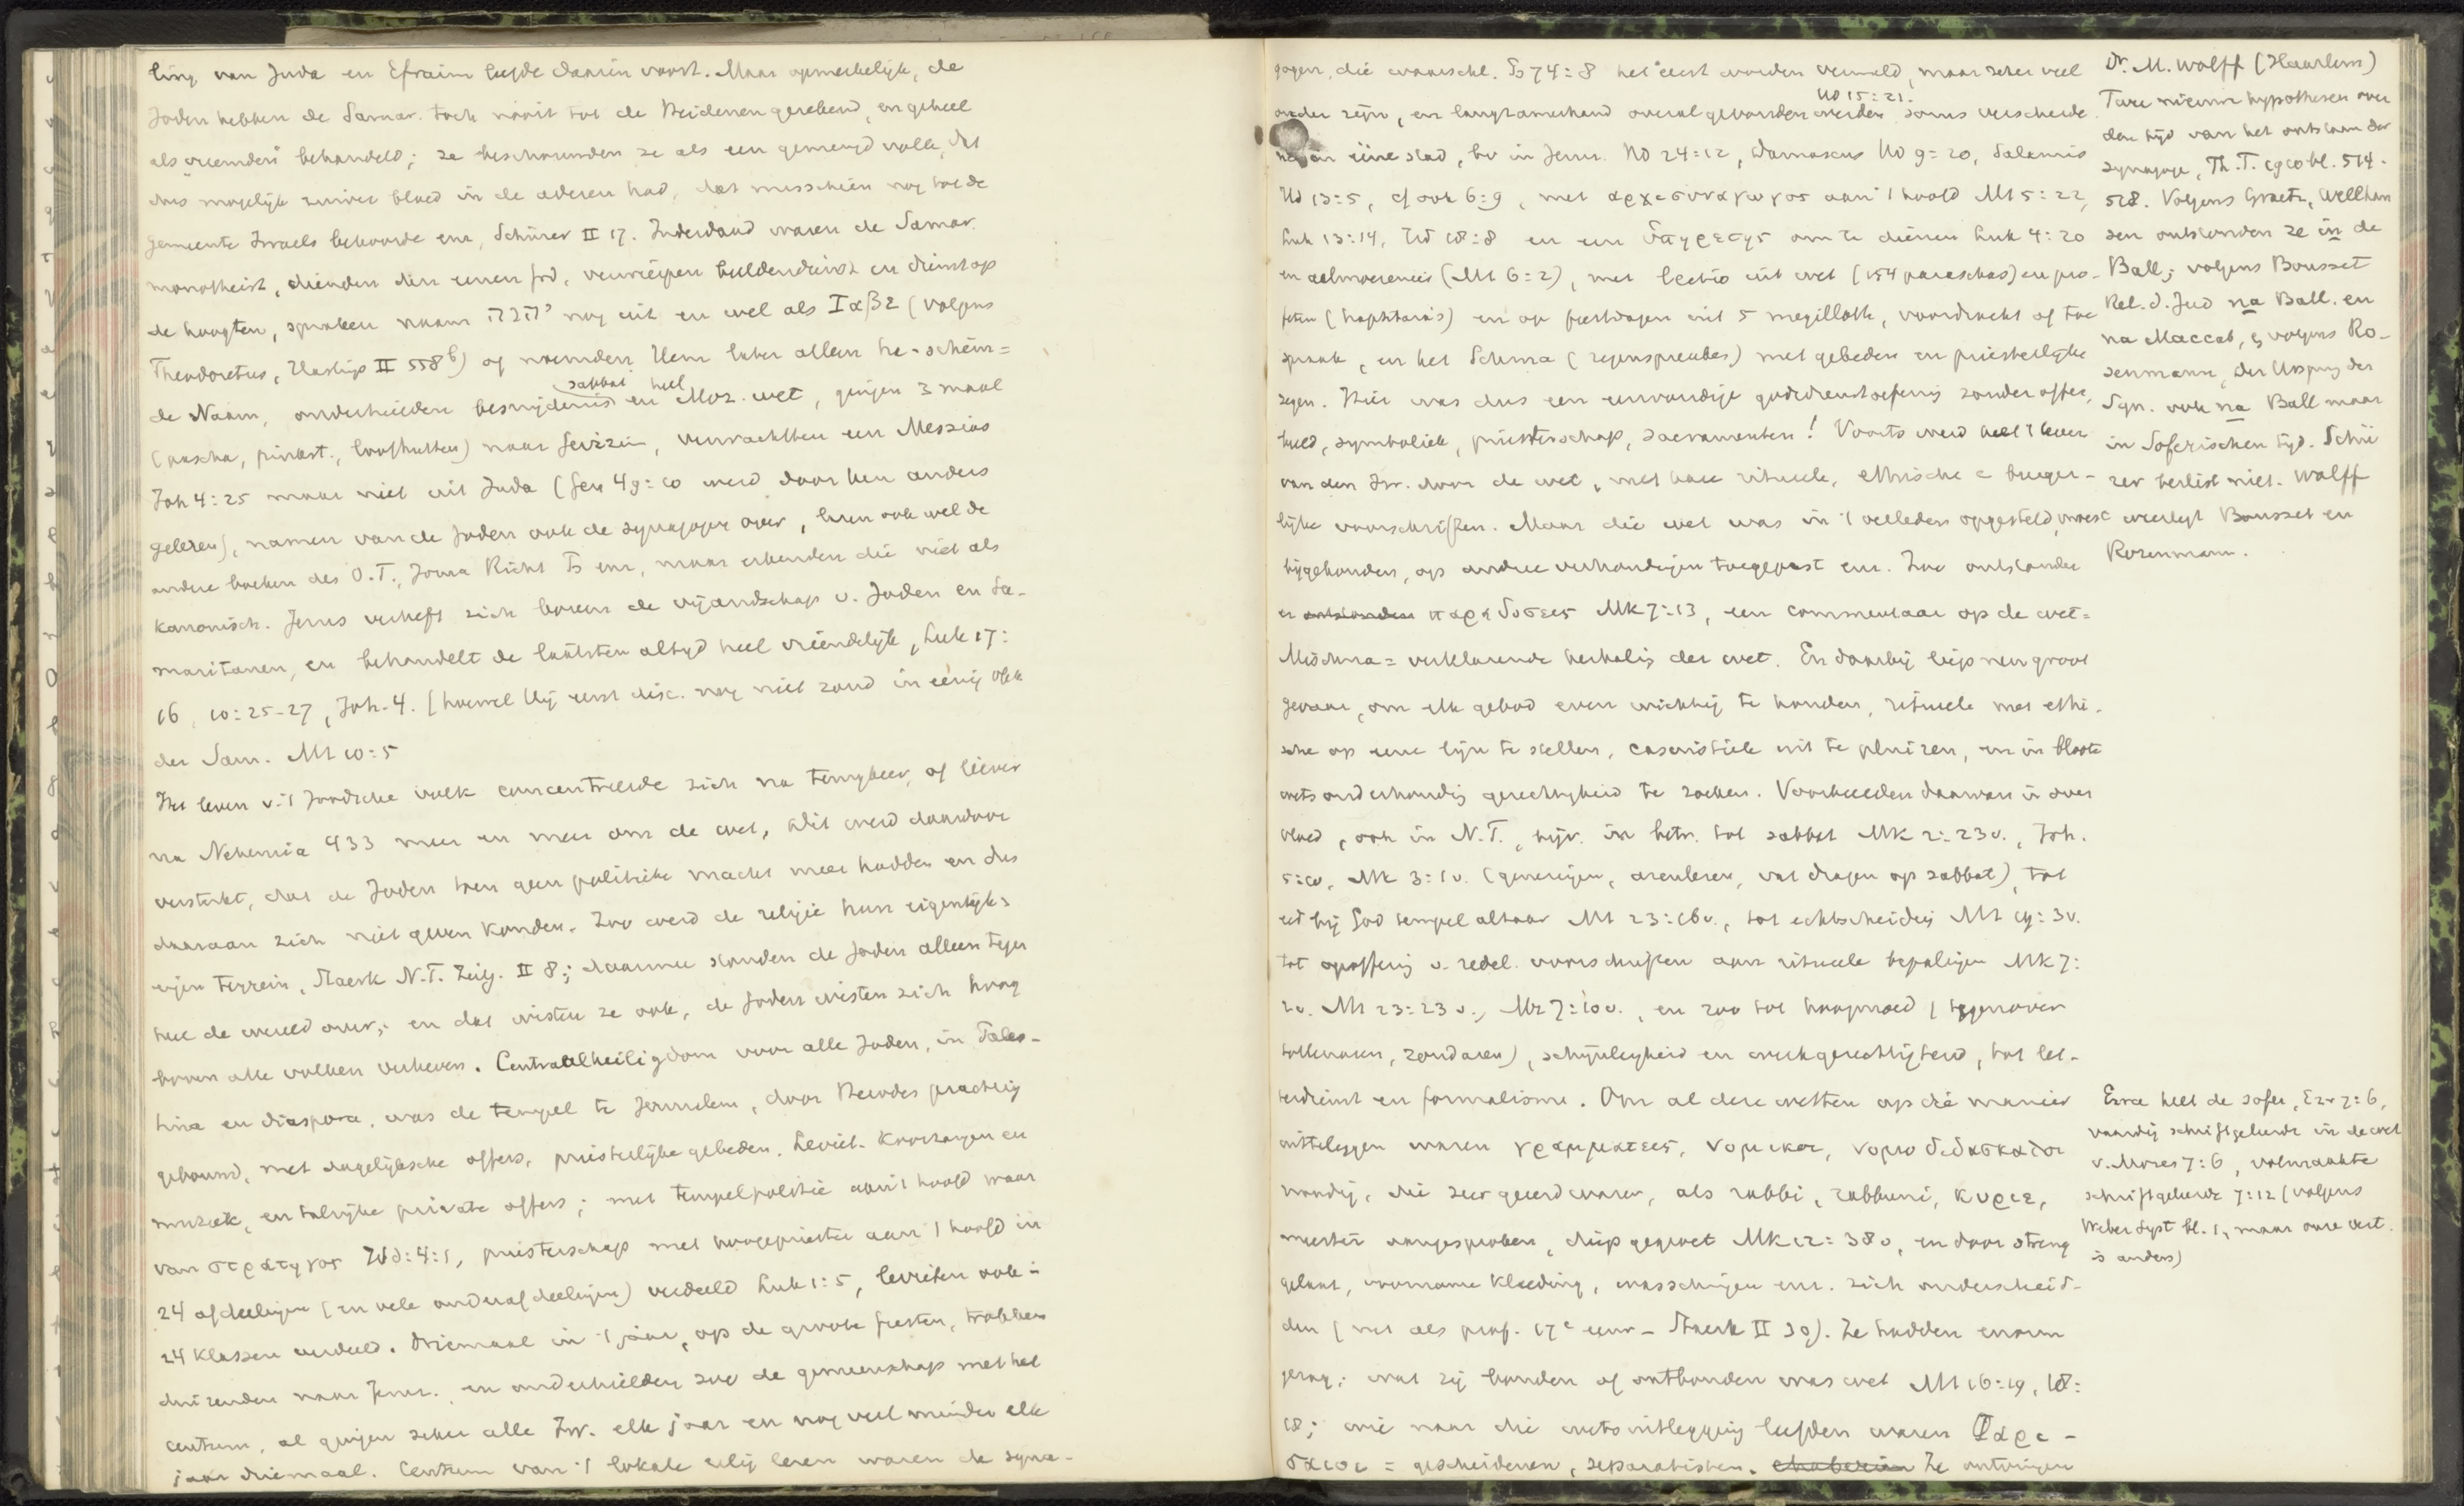 ling van Juda en Efraim leefde daarin voort. Maar opmerkelijk, de
Joden hebben de Samar. toch nooit tot de Heidenen gerekend, en geheel
als "vreemden" behandeld; ze beschouwden ze als een gemengd volk, dat
dus mogelijk zuiver bloed in de aderen had, dat misschien nog tot de
gemeente Israels behoorde enz, Schürer II 17. Inderdaad waren de Samar.
monotheist, dienden den eenen God, verwierpen beeldendienst en dienst op
de hoogten, spraken naam יהוה nog uit en wel als Ιαβε (volgens
Theodoretus, Hastings II 558b) of noemden Hem later alleen ha-schem =
de Naam, onderhielden besnijdenis sabbat en heel Moz. wet, gingen 3 maal
(pascha, pinkst., loofhutten) naar Gerizim, verwachtten een Messias
Joh 4:25 maar niet uit Juda (Gen 49:10 werd door hen anders
gelezen), namen van de Joden ook de synagoge over, lazen ook wel de
andere boeken des O.T., Jozua Richt Ps enz, maar erkenden die niet als
kanonisch. Jezus verheft zich boven de vijandschap v. Joden en Sa-
maritanen, en behandelt de laatsten altijd heel vriendelijk, Luk 17:
16, 10:25-27, Joh. 4. (hoewel Hij eerst disc. nog niet zond in eenig vlek
der Sam. Mt 10:5
Het leven v. 't Joodsche volk concentreerde zich na tempelbouw, of liever
na Nehemia 433 meer en meer om de wet, dit werd daardoor
versterkt, dat de Joden toen geen politieke macht meer hadden en dus
daaraan zich niet geven konden. Zoo werd de religie hun eigenlijk
eigen terrein, Staerk N.T. Zeitg. II 8; daarmee stonden de Joden alleen tegen
heel de wereld over; en dat wisten ze ook, de Joden wisten zich hoog
boven alle volken verheven. Centraalheiligdom voor alle Joden, in Pales-
tina en diaspora, was de tempel te Jeruzalem, door Herodes prachtig
gebouwd, met dagelijksche offers, priesterlijke gebeden, Leviet. koorzangen en
muziek, en talrijke private offers; met tempelpolitie aan 't hoofd waar
van στρατηγος Hd: 4:1, priesterschap met hoogepriester aan 't hoofd in
24 afdeelingen (en vele onderafdeelingen) verdeeld Luk 1:5, levieten ook in
24 klassen verdeeld. Driemaal in 't jaar, op de groote feesten, trokken
duizenden naar Jeruz. en onderhielden zoo de gemeenschap met het
centrum, al gingen zeker alle Isr. elk jaar en nog veel minder elk
jaar driemaal. Centrum van 't lokale relig leven waren de syna-
gogen, die waarschl. Ps 74:8 het eerst worden vermeld, maar zeker veel
ouder zijn, en langzamerhand overal gevonden werden Hd 15:21. soms verscheidene
in ééne stad, bv in Jeruz. Hd 24:12, Damascus Hd 9:20, Salamis
Hd 13:5, cf ook 6:9, met αρχισυναγωγος aan 't hoofd Mk 5:22,
Luk 13:14, Hd 18:8 en een υπηρετης om te dienen Luk 4:20
en aalmoezeniers (Mt 6:2), met lectio uit wet (154 paraschas) en pro-
feten (haphtaras) en op feestdagen uit 5 megilloth, voordracht of toe
spraak, en het Schma (zegenspreuken) met gebeden en priesterlijke
zegen. Hier was dus een eenvoudige godsdienstoefening zonder offer,
beeld, symboliek, priesterschap, sacramenten! Voorts werd heel 't leven
van den Isr. door de wet, met hare ritueele, ethische en burger-
lijke voorschriften. Maar die wet was in 't verleden opgesteld, moest
bijgehouden, op andere verhoudingen toegepast enz. Zoo ontstonden
er παραδοσεις Mk 7:13, een commentaar op de wet =
Mischna = verklarende herhaling der wet. En daarbij liep men groot
gevaar, om elk gebod even wichtig te houden, ritueele met ethi-
sche op eene lijn te stellen, casuistiek uit te pluizen, en in bloote
wetsonderhouding gerechtigheid te zoeken. Voorbeelden daarvan in over
vloed, ook in N.T., bijv. in betr. tot sabbat Mk 2:23v., Joh.
5:10, Mk 3:1v. (genezingen, arenlezen, wat dragen op sabbat), tot
eed bij God tempel altaar Mt 23:16v., tot echtscheiding Mt 19:3v.
tot opoffering v. zedel. voorschriften aan ritueele bepalingen Mk 7:
2v. Mt 23:23v., Mk 7:10v., en zoo tot hoogmoed (tegenover
tollenaren, zondaren), schijnheiligheid en werkgerechtigheid, tot let-
terdienst en formalisme. Om al deze wetten op die manier
uitteleggen waren γραμματεις, νομικοι, νομοδιδασκαλοι
noodig, die zeer geeerd waren, als rabbi, rabbuni, κυριε,
meester aangesproken, diep gegroet Mk 12:38v, en door streng
gelaat, voorname kleeding, wasschingen enz. zich onderscheid-
den (net als prof. 17e eeuw - Staerk II 39). Ze hadden enorm
gezag; wat zij bonden of ontbonden was wet Mt 16:19, 18:
18; wie naar die wetsuitlegging leefden waren Φαρι-
σαιοι = gescheidenen, separatisten. Ze ontvingen
Dr. M. Wolff (Haarlem)
Twee nieuwe hypothesen over
den tijd van het ontstaan der
synagoge, Th. T. 1910 bl. 514-
528. Volgens Graetz, Wellhau
sen ontstonden ze in de
Ball; volgens Bousset
Rel. d. Jud na Ball. en
na Maccab, & volgens Ro-
senmann, Der Ursprung der
Syn. ook na Ball maar
in Soferischen tijd. Schü
rer beslist niet. Wolff
weerlegt Bousset en
Rosenmann.
Ezra heet de sofer, Ezr 7:6,
vaardig schriftgeleerde in de wet
v. Mozes 7:6, volmaakte
schriftgeleerde 7:12 (volgens
Weber Syst bl. 1, maar onze vert.
is anders)